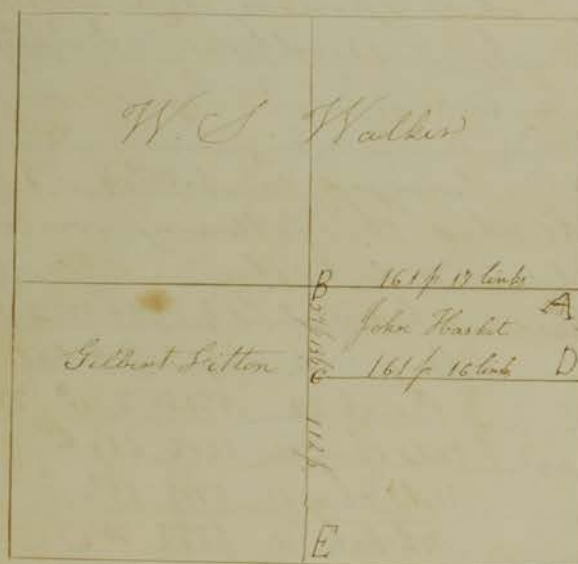 W. S. Walker
B 161 p 17 links
A
John Hasket
Gilbert Litton
C 161 p 16 links D
112 p
E